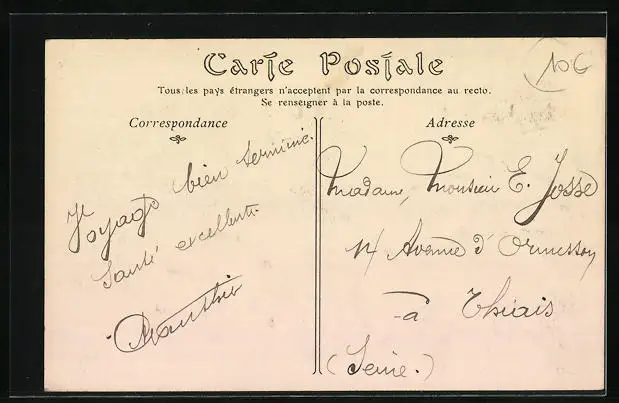 Carte Postale
Tous les pays étrangers n'acceptent par la correspondance au recto.
Se renseigner à la poste.
Correspondance
Voyage bien terminé.
Santé excellente
Adresse
Madame, Monsieur E. Josse
14 Avenue d'Ormesson
à Thiais
(Seine.)